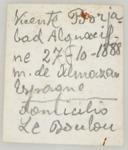 Vicente Borja
bad Alguecif-
ne 27-10-1888
m. de Almazora
Espagne
domicilio
Le Boulou